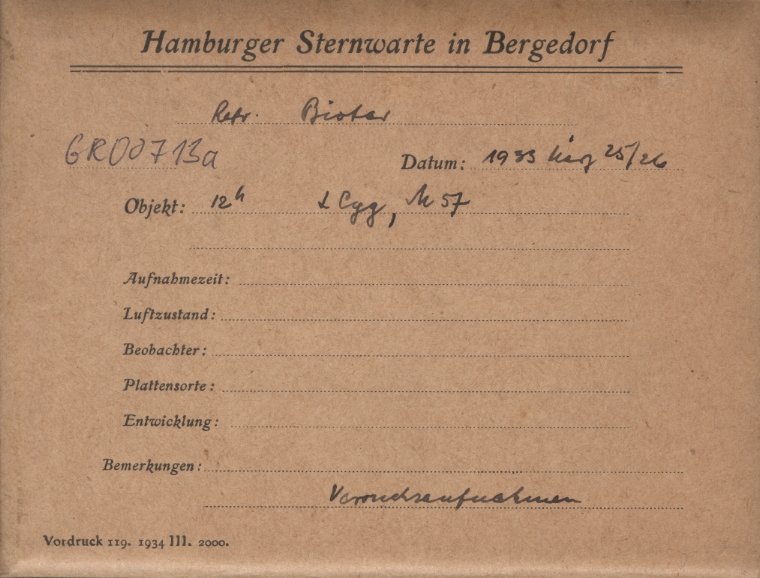 Hamburger Sternwarte in Bergedorf
Refr. Biotar
GR00713a
Datum: 1933 25/26
Objekt: 12h α Cyg, M 57
Aufnahmezeit:
Luftzustand:
Beobachter:
Plattensorte:
Entwicklung:
Bemerkungen:
Versuchsaufnahmen
Vordruck 119. 1934 III. 2000.